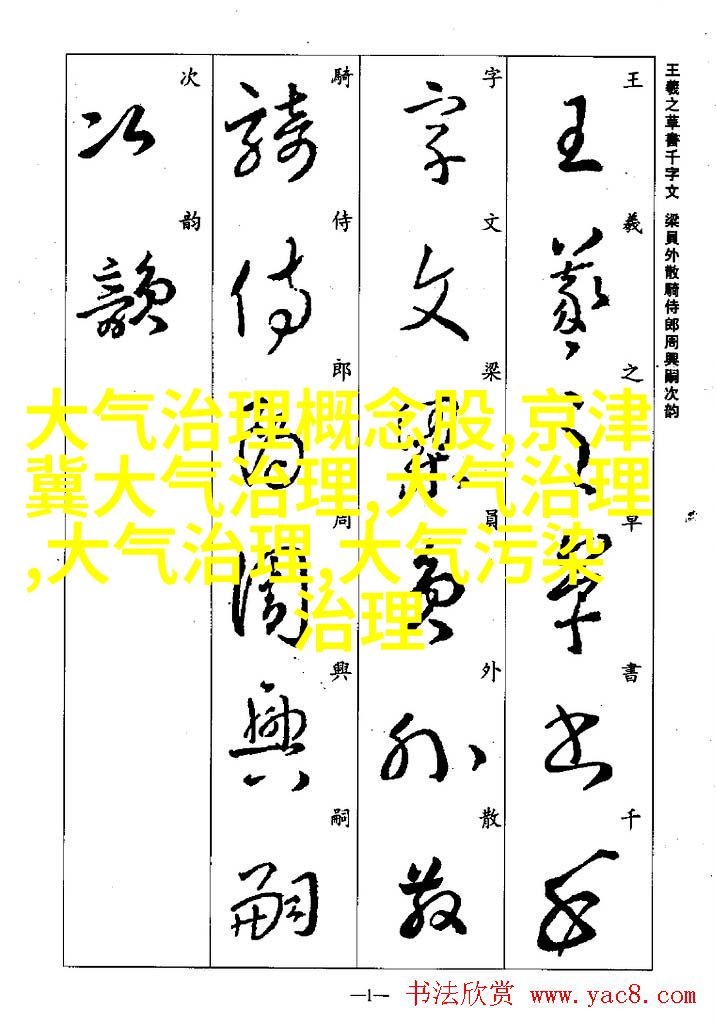 王羲之草書千字文 梁員外散騎侍郎周興嗣次韵
王羲之草書千
王羲之草書千
字文梁員外散
字文梁員外散
騎侍郎周興嗣
騎侍郎周興嗣
次韵
次韻
大气治理概念股,京津
冀大气治理,大气治理
,大气治理,大气污染
治理
—1—
书法欣赏 www.yac8.com